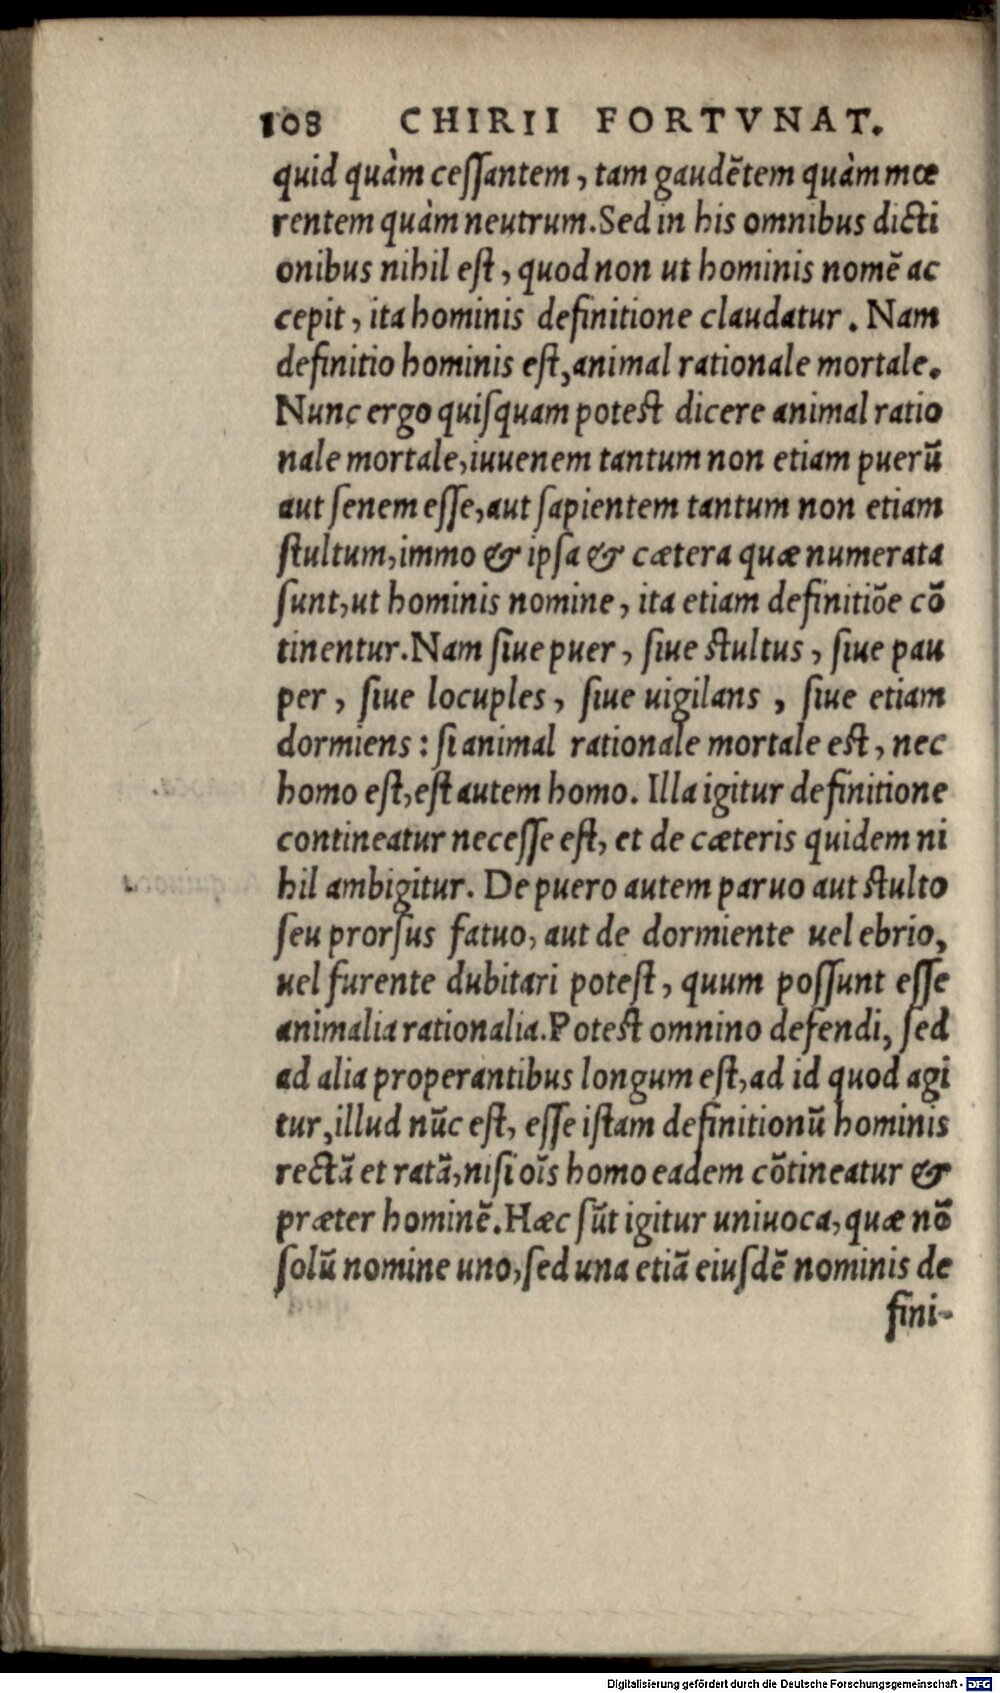 108 CHIRII FORTVNAT.
quid quàm ceſſantem, tam gaudētem quàm mœ
rentem quàm neutrum. Sed in his omnibus dicti
onibus nihil eſt, quod non ut hominis nomē ac
cepit, ita hominis definitione claudatur. Nam
definitio hominis eſt, animal rationale mortale.
Nunc ergo quiſquam poteſt dicere animal ratio
nale mortale, iuuenem tantum non etiam puerū
aut ſenem eſſe, aut ſapientem tantum non etiam
ſtultum, immo & ipſa & cætera quæ numerata
ſunt, ut hominis nomine, ita etiam definitiōe cō
tinentur. Nam ſiue puer, ſiue ſtultus, ſiue pau
per, ſiue locuples, ſiue uigilans, ſiue etiam
dormiens: ſi animal rationale mortale eſt, nec
homo eſt, eſt autem homo. Illa igitur definitione
contineatur neceſſe eſt, et de cæteris quidem ni
hil ambigitur. De puero autem paruo aut ſtulto
ſeu prorſus fatuo, aut de dormiente uel ebrio,
uel furente dubitari poteſt, quum poſſunt eſſe
animalia rationalia. Poteſt omnino defendi, ſed
ad alia properantibus longum eſt, ad id quod agi
tur, illud nūc eſt, eſſe iſtam definitionū hominis
rectā et ratā, niſi oīs homo eadem cōtineatur &
præter hominē. Hæc ſūt igitur uniuoca, quæ nō
ſolū nomine uno, ſed una etiā eiuſdē nominis de
fini-
Digitalisierung gefördert durch die Deutsche Forschungsgemeinschaft - DFG